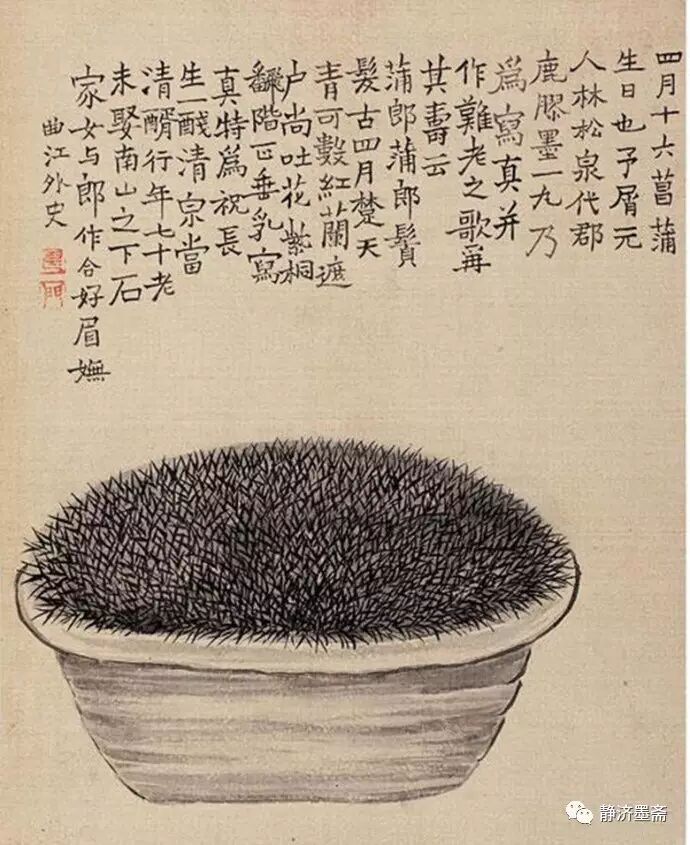 四月十六菖蒲
生日也予屑元
人林松泉代郡
鹿膠墨一丸乃
爲寫真并
作難老之歌再
其壽云
蒲郎蒲郎鬢
髮古四月楚天
青可數紅蘭遮
户尚吐花紫桐
翻階正垂乳寫
真特爲祝長
生一醆清泉當
清醑行年七十老
未娶南山之下石
家女与郎作合好眉嫵
曲江外史
静济墨斋